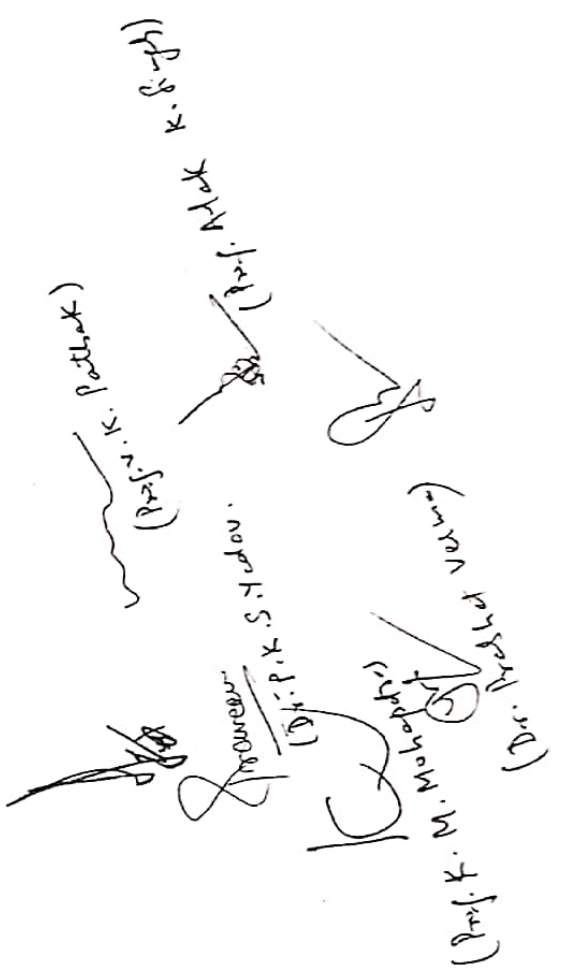 (Prof. V. K. Pathak)
(Prof. Alok K. Singh)
(Dr. P. K. S. Yadav.
(Prof. K. M. Mohapatra)
(Dr. Prabhat Verma)